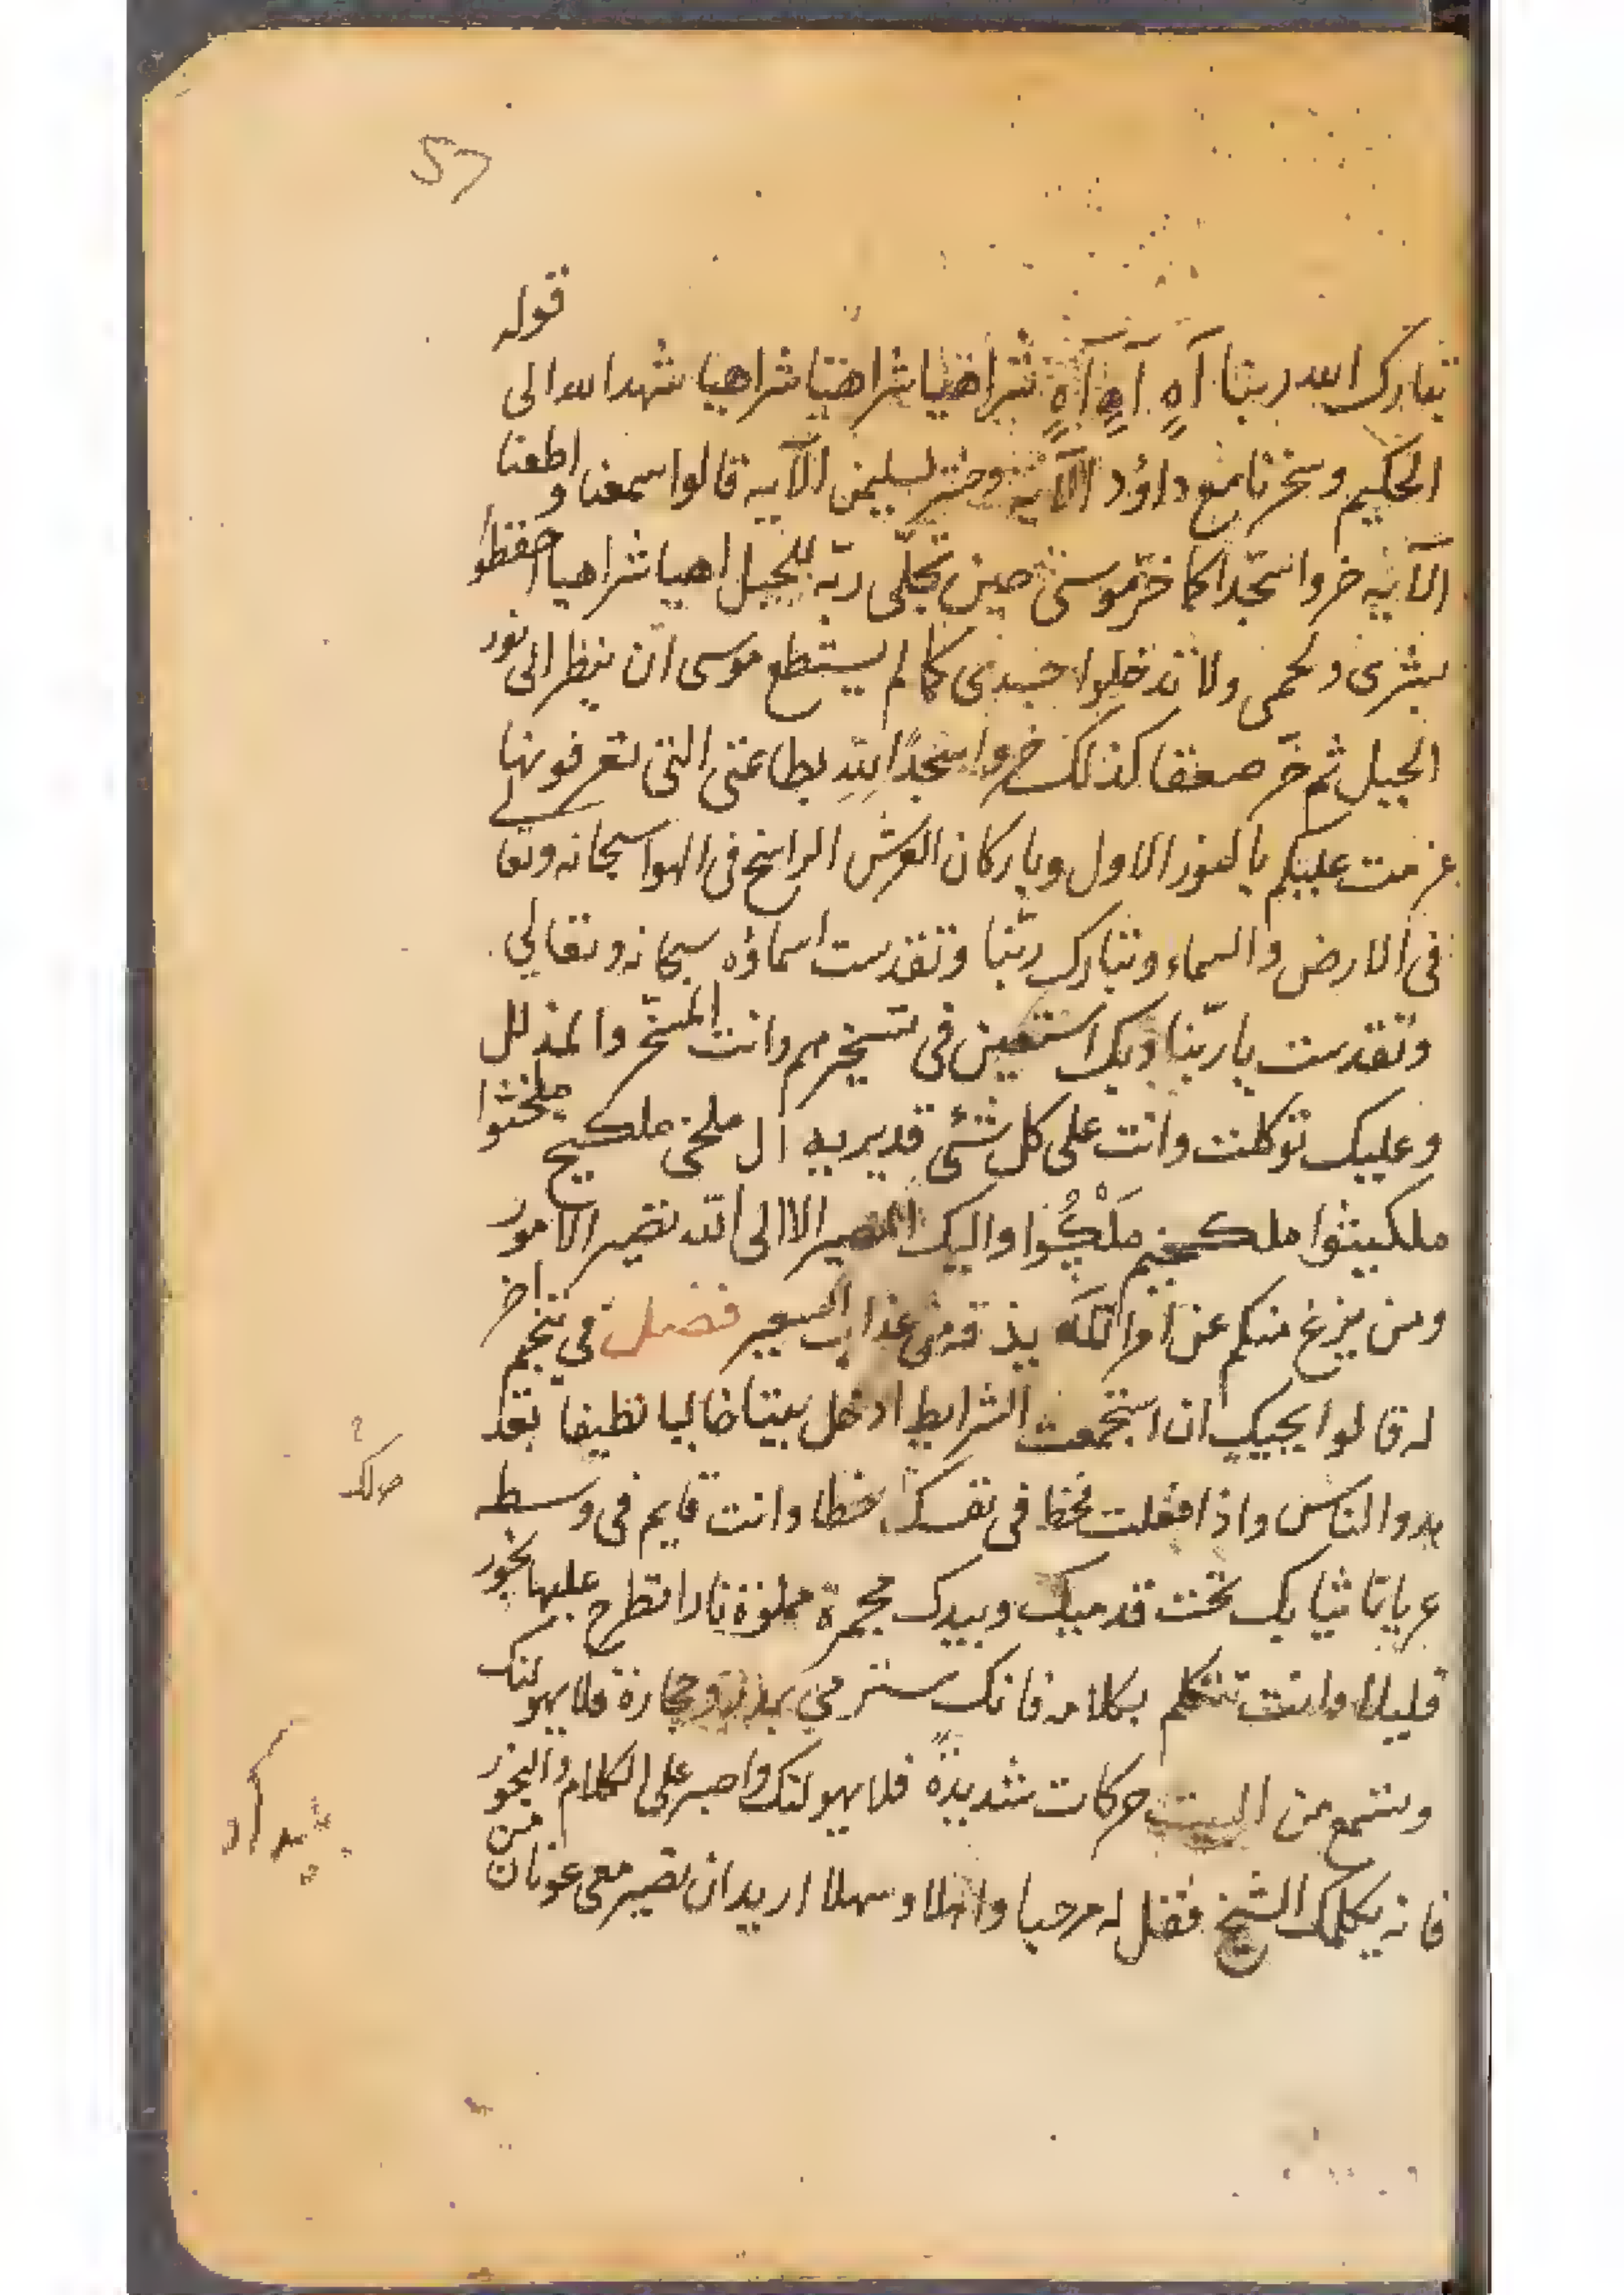 قوله
تبارك الله ربنا آهٍ آهٍ آهٍ شراهيا شراهيا شراهيا شهد الله الى
الحكيم وسخرنا مع داؤد الآيه وحشر لسليمن الآيه قالوا سمعنا واطعنا
الآيه خروا سجّدا كما خرّ موسى حين تجلّى ربّه للجبل اهيا شراهيا احفظوا
بشرى ولحمى ولا تدخلوا جسدى كما لم يستطع موسى ان ينظر الى نور
الجبل ثم خرّ صعقا كذلك خروا سجدًا لِلّهِ بطاعتى التى تعرفونها
عزمت عليكم بالنور الاول وباركان العرش الراسخ فى الهوا سبحانه وتعالى
فى الارض والسماء وتبارك ربّنا وتقدست اسماؤه سبحانه وتعالي
وتقدست ياربّنا وبك استعين فى تسخيرهم وانت المسخّر والمذلل
وعليك توكلت وانت على كل شئ قدير يه ال ملخى ملكيج ملخثوا
ملكبيثوا مَلْكُوا واليك المصير الا الى اللّه تصير الامور
ومن يزغ منكم عن امر اللّه يذقه من عذاب السعير فصل فى تنجيم اخر
له قالوا يجيبك ان استجمعت الشرايط ادخل بيتا خاليا نظيفا بعد
هدو الناس واذا فعلت فخط فى نفسك خطا وانت قايم فى وسطه
عرياناً ثيابك تحت قدميك وبيدك مجمرة مملؤة نارا تطرح عليها بخور
قليلا وانت تتكلم بكلامه فانك سترمي وحجارة فلا يهولنك
وتسمع من البيت حركات شديدةً فلا يهولنك واصبر على الكلام والبخور
فانه يكلمك الشيخ فقل له مرحبا واهلا وسهلا اريد ان تصير معى عونان من